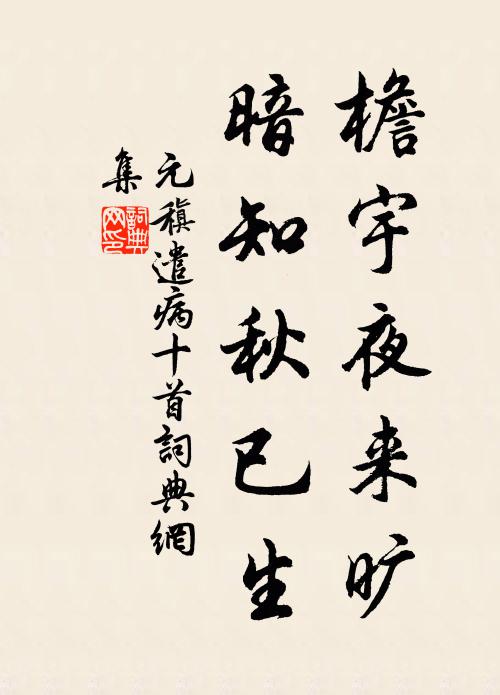 檐宇夜来旷
暗知秋已生
元稹遣病十首詞典網
集
詞典網印